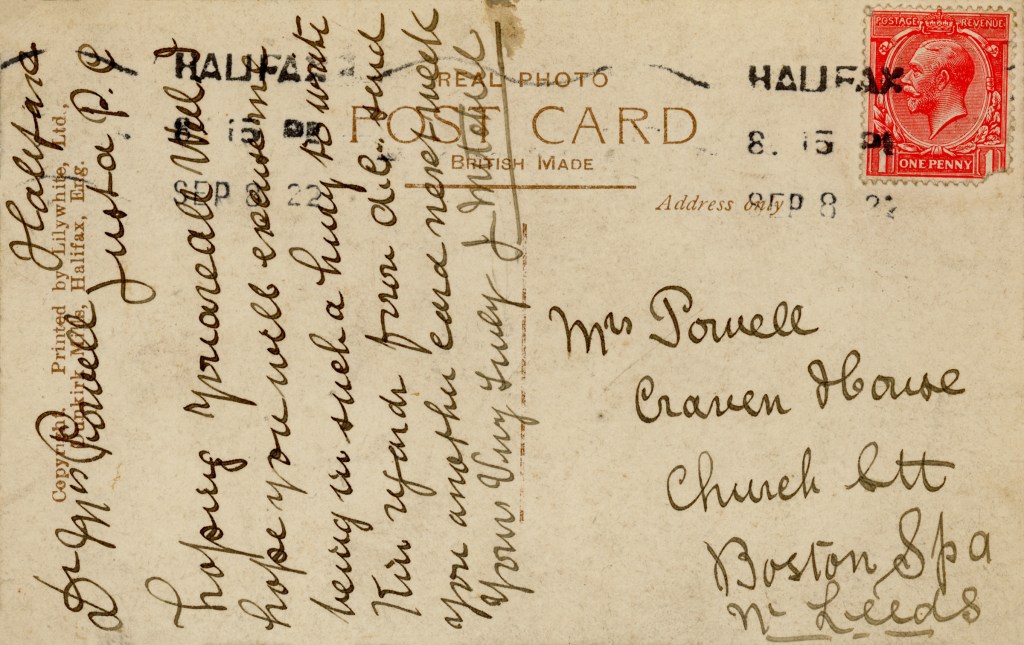 HALIFAX
8. 15 PM
SEP 8 22
HALIFAX
8. 15 PM
SEP 8 22
POSTAGE REVENUE
ONE PENNY
REAL PHOTO
POST CARD
BRITISH MADE
Address only
Copyright. Printed by Lilywhite, Ltd.,
Dunkirk Mills, Halifax, Eng.
Halifax
Dr Mrs Powell Just a P. C
hoping you are all Well
hope you will excuse me
being in such a hury to write
Kin regards from all. send
you another card next week
Yours Very Truly
Mrs Powell
Craven House
Church Stt
Boston Spa
Nr Leeds